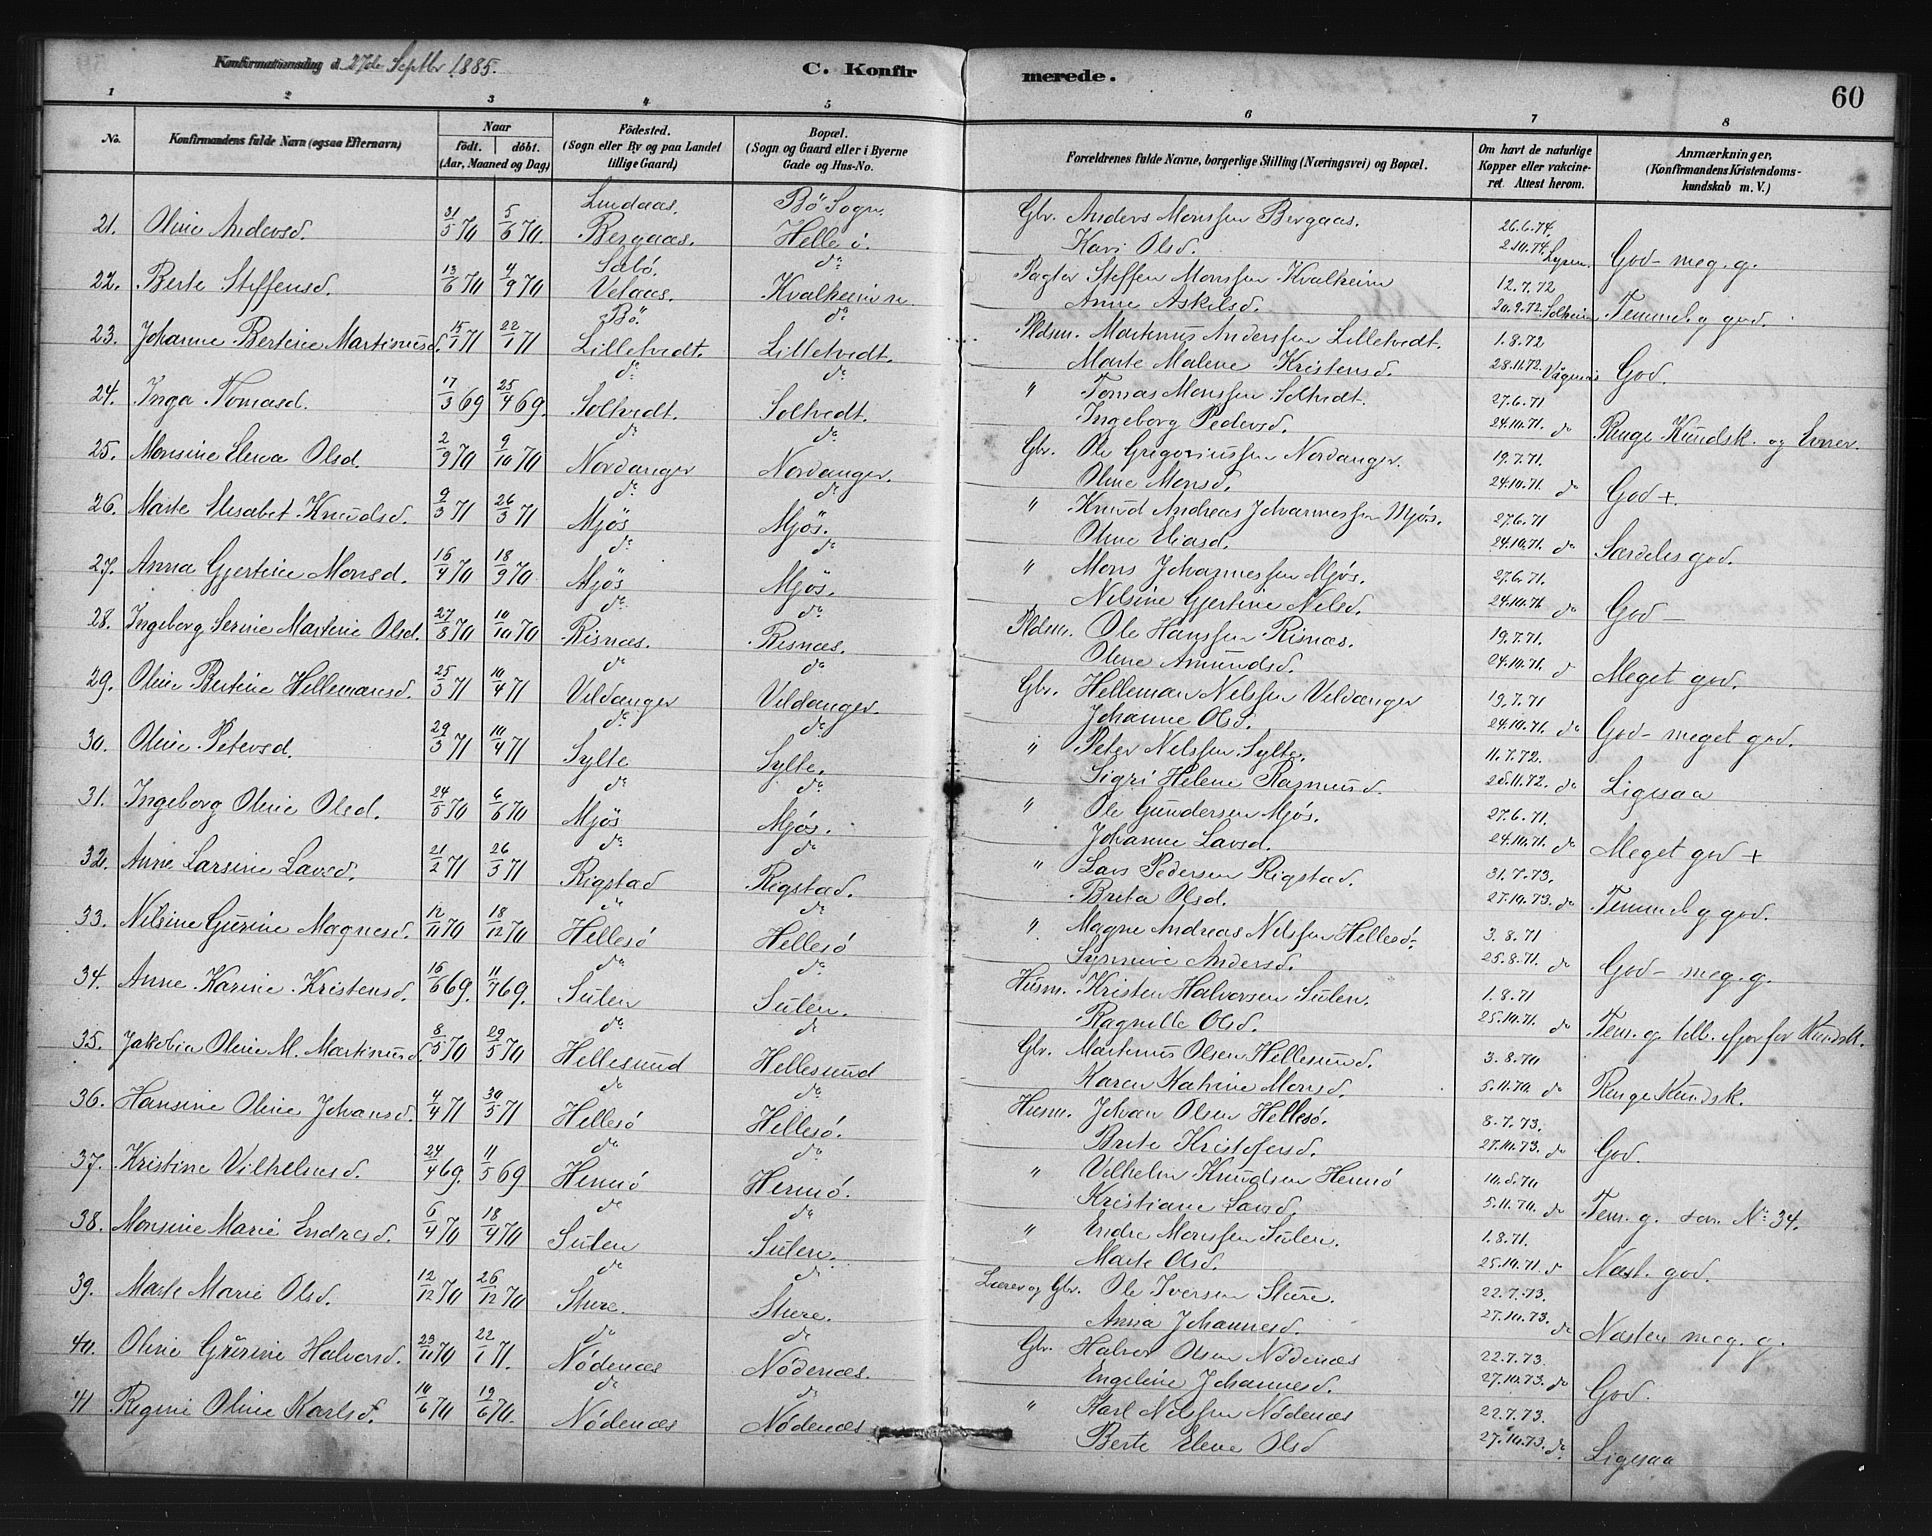 Konfirmationsdag d. 27de Septbr 1885.
C. Konfirmerede.
60
1 2 3 4 5 6 7 8
No. Konfirmandens fulde Navn (ogsaa Efternavn) Naar født. døbt. (Aar, Maaned og Dag) Fødested. (Sogn eller By og paa Landet tillige Gaard) Bopæl. (Sogn og Gaard eller i Byerne Gade og Hus-No. Forældrenes fulde Navne, borgerlige Stilling (Næringsvei) og Bopæl. Om havt de naturlige Kopper eller vakcineret. Attest herom. Anmærkninger. (Konfirmandens Kristendomskundskab m. V.)
Lindaas. Bö Sogn.
21. Oline Andersd. 31/5 70 5/6 70. Bergaas. Helle i. Gbr. Anders Monssen Bergaas. 26.6.74.
Kari Olsd. 2.10.74. God - meg. g.
Sæbö. do
22. Berte Steffensd. 13/6 70 4/9 70 Velaas. Kvalheim n. Pagter Steffen Monssen Kvalheim 12.7.72
Anne Askilsd. 20.9.72. Solheim Temmelig god.
Bö. do
23. Johanne Bertine Martinusd. 15/1 71 22/1 71 Lilletvedt. Lilletvedt. Pldsm. Martinus Anderssen Lilletvedt. 1.8.72
Marte Malene Kristensd. 28.11.72. God.
do do
24. Inga Tomasd. 17/3 69 25/4 69. Soltvedt. Soltvedt. " Tomas Monssen Soltvedt. 27.6.71
Ingeborg Pedersd. 24.10.71. do Ringe Kundsk. og Evner.
do do
25. Monsine Elena Olsd. 2/9 70 9/10 70 Nordanger Nordanger. Gbr. Ole Gregoriussen Nordanger. 19.7.71.
Oline Monsd. 24.10.71. do God +
do do
26. Marte Elisabet Knudsd. 9/3 71 26/3 71 Mjös Mjös. " Knud Andreas Johannessen Mjös. 27.6.71
Oline Eliasd. 24.10.71. do Særdeles god.
do do
27. Anna Gjertine Monsd. 16/4 70 18/9 70 Mjös Mjös. " Mons Johannessen Mjös. 27.6.71.
Nilsine Gjertine Nilsd. 24.10.71 do God -
do do
28. Ingeborg Serine Martine Olsd. 27/8 70 10/10 70 Risnæs. Risnæs. Pldsm. Ole Hanssen Risnæs. 19.7.71.
Oline Amundsd. 24.10.71. d Meget god.
do do
29. Oline Bertine Hellemansd. 25/3 71 10/4 71 Vildanger Vildanger. Gbr. Helleman Nilssen Vildanger 19.7.71
Johanne Olsd. 24.10.71. do God - meget god.
do do
30. Oline Petersd. 29/3 71 10/4 71 Sylte Sylte. " Peter Nilssen Sylte. 11.7.72.
Sigri Helene Rasmusd. 28.11.72. do Ligesaa
do do
31. Ingeborg Oline Olsd. 24/5 70 6/6 70 Mjös Mjös. " Ole Gundersen Mjös. 27.6.71.
Johanne Larsd. 24.10.71. do Meget god +
do do
32. Anne Larsine Larsd. 21/2 71 26/3 71 Rigstad Rigstad. " Lars Pedersen Rigstad. 31.7.73.
Brita Olsd. 27.10.73. do Temmelig god.
do do
33. Nilsine Gurine Magnesd. 12/11 70 18/12 70 Hellesö Hellesö " Magne Andreas Nilssen Hellesö. 3.8.71
Synnive Andersd. 25.8.71. do God - meg. g.
do do
34. Anne Karine Kristensd. 16/6 69. 11/7 69. Sulen Sulen. Husm. Kristen Halvorsen Sulen. 1.8.71
Ragnille Olsd. 25.10.71. do Tem. g.
do do
35. Jakobia Oline M. Martinusd. 8/5 70 29/5 70 Hellesund Hellesund Gbr. Martinus Olsen Hellesund. 3.8.70
Karen Katrine Monsd. 5.11.70. do Ringe Kundsk.
do do
36. Hansine Oline Johansd. 4/4 71 30/5 71 Hellesö Hellesö. Husm. Johan Olsen Hellesö. 8.7.73.
Brite Kristofersd. 27.10.73. do God.
do do
37. Kristine Vilhelmsd. 24/4 69. 11/5 69 Hernö Hernö. " Vilhelm Knudsen Hernö 10.8.70
Kristiane Larsd. 5.11.70. do Tem. g. som No 34.
do do
38. Monsine Marie Endresd. 6/4 70 18/4 70 Sulen Sulen. " Endre Monssen Sulen. 1.8.71.
Marte Olsd. 25.10.71 d Næst. god.
do do
39. Marte Marie Olsd. 12/12 70 26/12 70 Sture. Sture. Lærer og Gbr. Ole Iversen Sture. 22.7.73.
Anna Johannesd. 27.10.73. do Næsten meg. g.
do do
40. Oline Gurine Halvorsd. 23/11 70 22/1 71. Nödenæs Nödenæs. Gbr. Halvor Olsen Nödenæs 22.7.73.
Engeline Johannesd. 27.10.73. do God.
do do
41 Regine Oline Karlsd. 10/6 70 19/6 70. Nödenæs Nödenæs " Karl Nilssen Nödenæs 22.7.73.
Berte Elene Olsd 27.10.73. do. Ligesaa